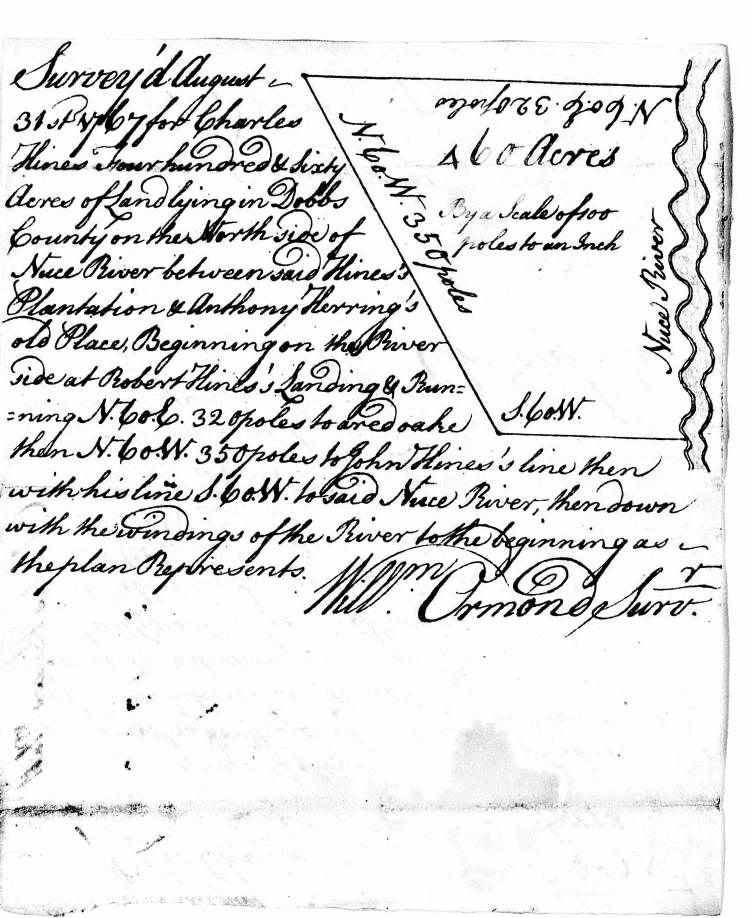 Survey'd August
31st 1767 for Charles
Hines Four hundred & Sixty
Acres of Land lying in Dobbs
County on the North side of
Nuce River between said Hines's
Plantation & Anthony Herring's
old Place, Beginning on the River
side at Robert Hines's Landing & Run=
=ning N.60.E. 320 poles to a red oake
then N.60.W. 350 poles to John Hines's line then
with his line S.60.W. to said Nuce River, then down
with the windings of the River to the beginning as
the plan Represents.
Willm. Ormond Survr.
N.60.E. 320 poles
460 Acres
By a Scale of 100
poles to an Inch
N.60.W. 350 poles
Nuce River
S.60.W.